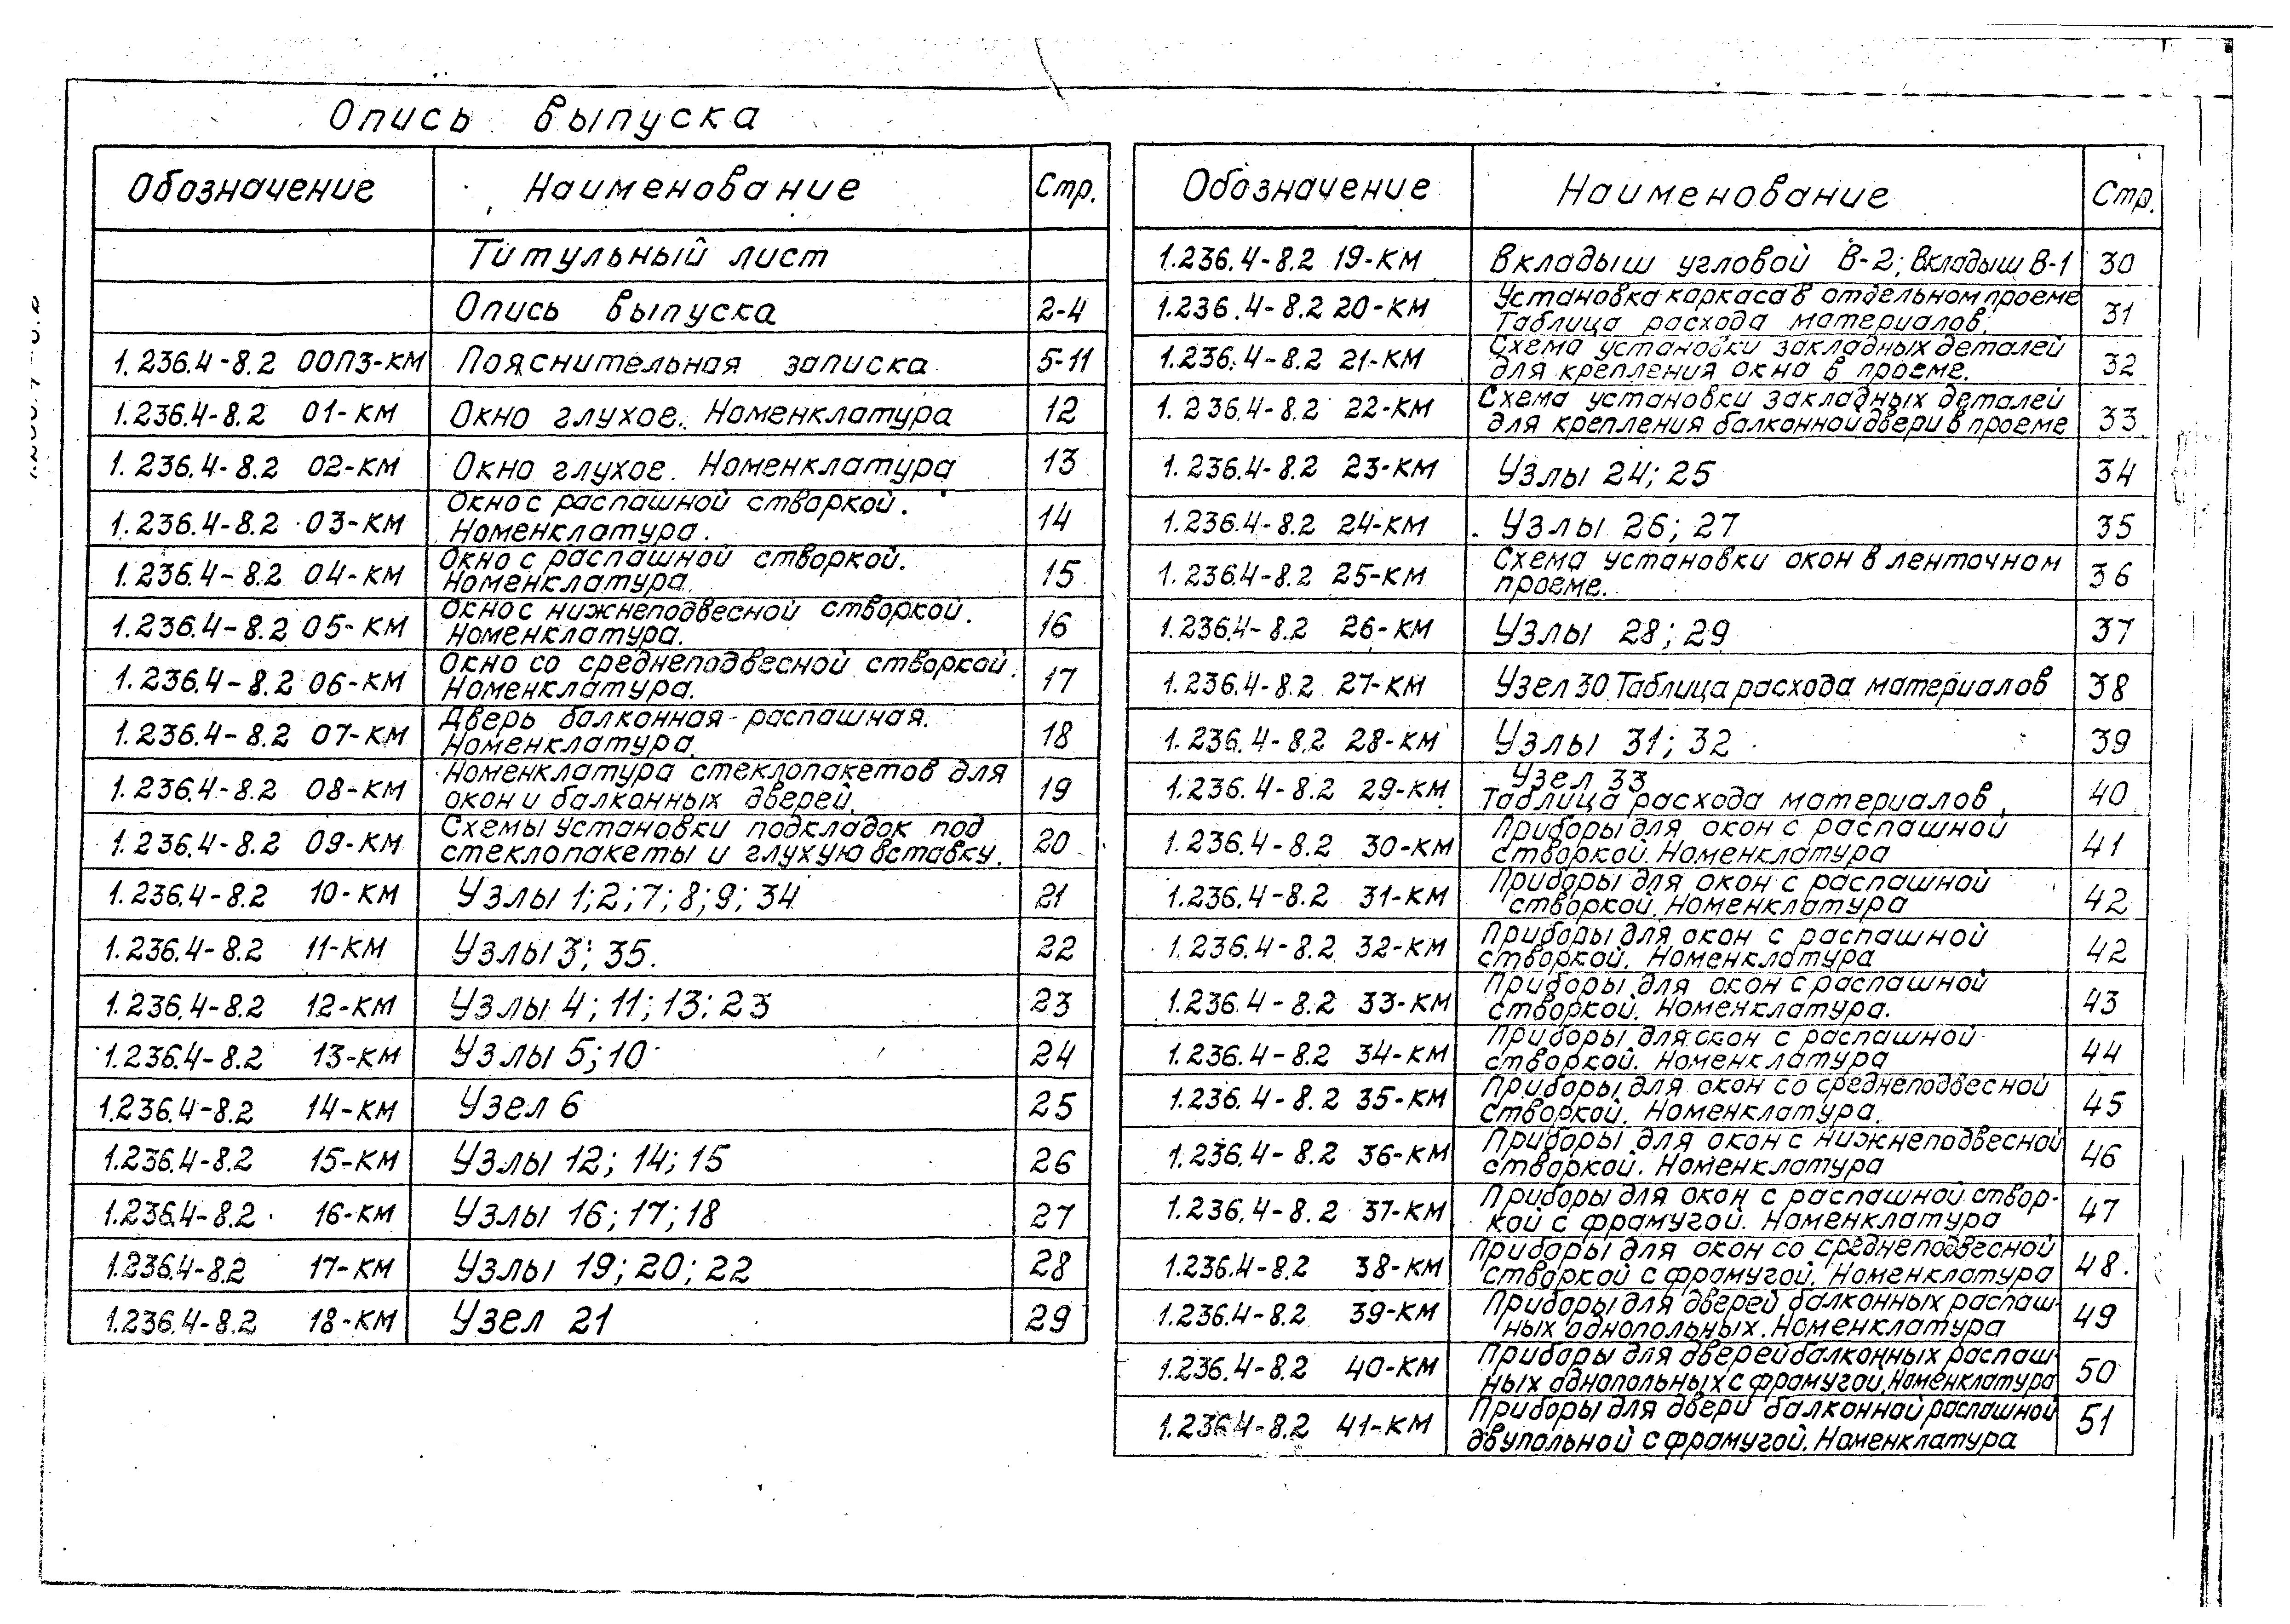 Опись выпуска
Обозначение Наименование Стр.
Титульный лист
Опись выпуска 2-4
1.236.4-8.2 00ПЗ-КМ Пояснительная записка 5-11
1.236.4-8.2 01-КМ Окно глухое. Номенклатура 12
1.236.4-8.2 02-КМ Окно глухое. Номенклатура 13
1.236.4-8.2 03-КМ Окно с распашной створкой. 14
Номенклатура.
1.236.4-8.2 04-КМ Окно с распашной створкой. 15
Номенклатура.
1.236.4-8.2 05-КМ Окно с нижнеподвесной створкой. 16
Номенклатура.
1.236.4-8.2 06-КМ Окно со среднеподвесной створкой. 17
Номенклатура.
1.236.4-8.2 07-КМ Дверь балконная распашная. 18
Номенклатура.
1.236.4-8.2 08-КМ Номенклатура стеклопакетов для 19
окон и балконных дверей.
1.236.4-8.2 09-КМ Схемы установки подкладок под 20
стеклопакеты и глухую вставку.
1.236.4-8.2 10-КМ Узлы 1; 2; 7; 8; 9; 34 21
1.236.4-8.2 11-КМ Узлы 3; 35. 22
1.236.4-8.2 12-КМ Узлы 4; 11; 13; 23 23
1.236.4-8.2 13-КМ Узлы 5; 10 24
1.236.4-8.2 14-КМ Узел 6 25
1.236.4-8.2 15-КМ Узлы 12; 14; 15 26
1.236.4-8.2 16-КМ Узлы 16; 17; 18 27
1.236.4-8.2 17-КМ Узлы 19; 20; 22 28
1.236.4-8.2 18-КМ Узел 21 29
Обозначение Наименование Стр.
1.236.4-8.2 19-КМ Вкладыш угловой В-2; Вкладыш В-1 30
1.236.4-8.2 20-КМ Установка каркаса в отдельном проеме 31
Таблица расхода материалов.
1.236.4-8.2 21-КМ Схема установки закладных деталей 32
для крепления окна в проеме.
1.236.4-8.2 22-КМ Схема установки закладных деталей 33
для крепления балконной двери в проеме
1.236.4-8.2 23-КМ Узлы 24; 25 34
1.236.4-8.2 24-КМ Узлы 26; 27 35
1.236.4-8.2 25-КМ Схема установки окон в ленточном 36
проеме.
1.236.4-8.2 26-КМ Узлы 28; 29 37
1.236.4-8.2 27-КМ Узел 30. Таблица расхода материалов 38
1.236.4-8.2 28-КМ Узлы 31; 32 39
1.236.4-8.2 29-КМ Узел 33 40
Таблица расхода материалов
1.236.4-8.2 30-КМ Приборы для окон с распашной 41
створкой. Номенклатура
1.236.4-8.2 31-КМ Приборы для окон с распашной 42
створкой. Номенклатура
1.236.4-8.2 32-КМ Приборы для окон с распашной 42
створкой. Номенклатура
1.236.4-8.2 33-КМ Приборы для окон с распашной 43
створкой. Номенклатура.
1.236.4-8.2 34-КМ Приборы для окон с распашной 44
створкой. Номенклатура
1.236.4-8.2 35-КМ Приборы для окон со среднеподвесной 45
створкой. Номенклатура.
1.236.4-8.2 36-КМ Приборы для окон с нижнеподвесной 46
створкой. Номенклатура
1.236.4-8.2 37-КМ Приборы для окон с распашной створ- 47
кой с фрамугой. Номенклатура
1.236.4-8.2 38-КМ Приборы для окон со среднеподвесной 48
створкой с фрамугой. Номенклатура
1.236.4-8.2 39-КМ Приборы для дверей балконных распаш- 49
ных однопольных. Номенклатура
1.236.4-8.2 40-КМ Приборы для дверей балконных распаш- 50
ных однопольных с фрамугой. Номенклатура
1.236.4-8.2 41-КМ Приборы для двери балконной распашной 51
двупольной с фрамугой. Номенклатура